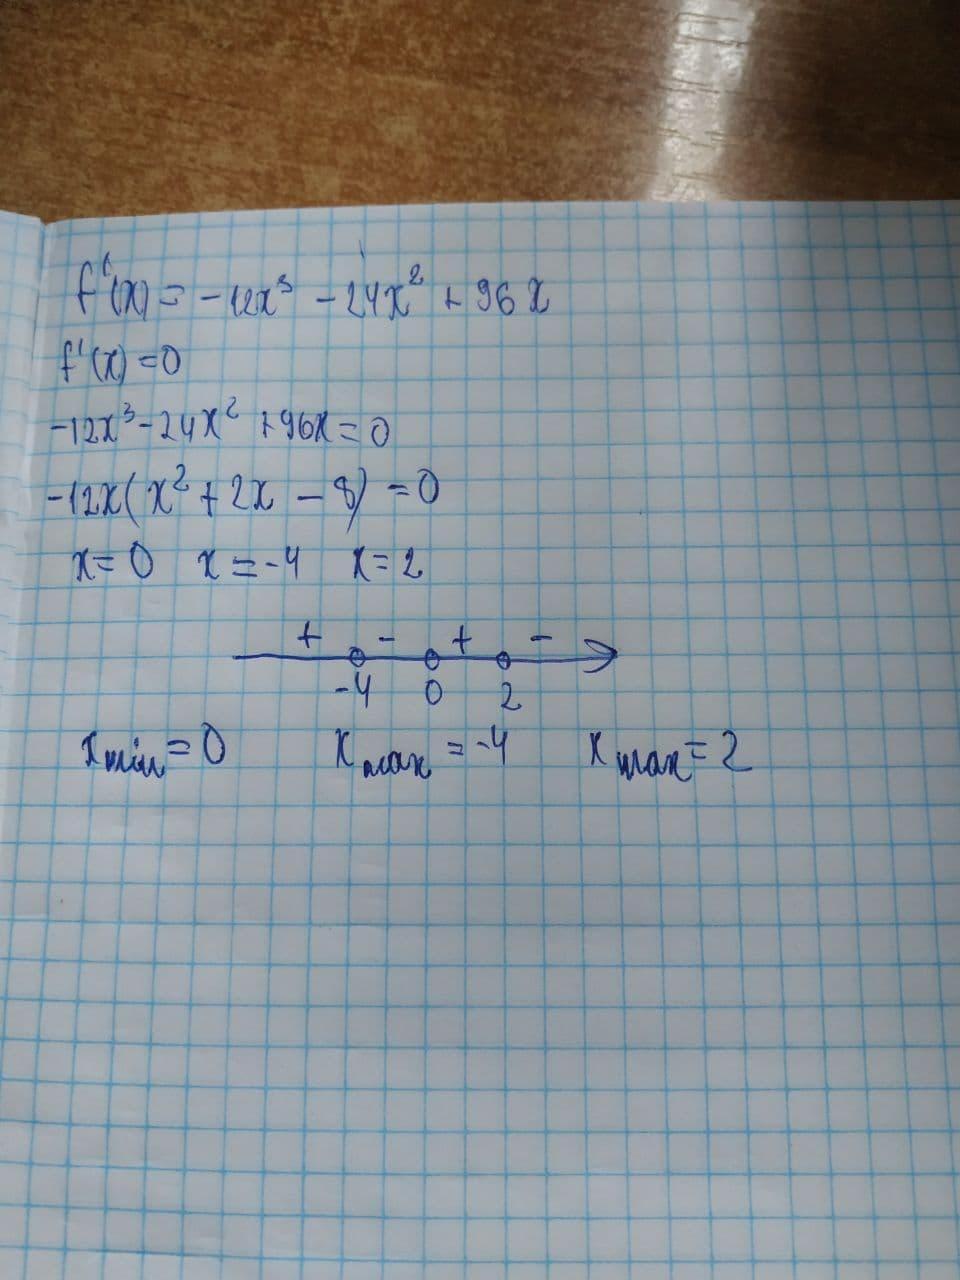 f'(x) = -12x³ - 24x² + 96x
f'(x) = 0
-12x³ - 24x² + 96x = 0
-12x(x² + 2x - 8) = 0
x = 0 x = -4 x = 2
+ - + -
-4 0 2
x min = 0 x max = -4 x max = 2